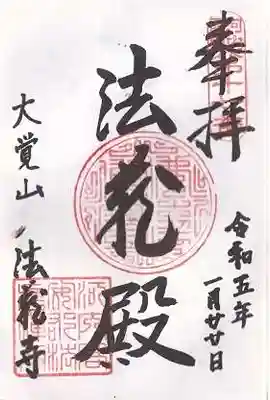 奉拝
令和五年
一月廿廿日
法蔵殿
大覚山
法蔵寺